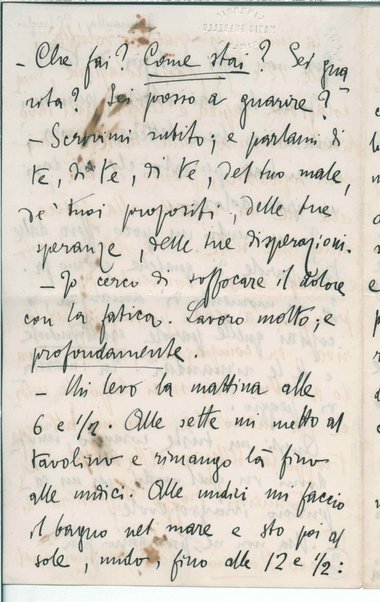 - Che fai? Come stai? Sei gua
rita? Sei presso a guarire?
- Scrivimi subito; e parlami di
te, di te, di te, del tuo male,
de' tuoi propositi, delle tue
speranze, delle tue disperazioni.
- Io cerco di soffocare il dolore
con la fatica. Lavoro molto; e
profondamente.
- Mi levo la mattina alle
6 e 1/2. Alle sette mi metto al
tavolino e rimango là fino
alle undici. Alle undici mi faccio
il bagno nel mare e sto poi al
sole, nudo, fino alle 12 e 1/2: